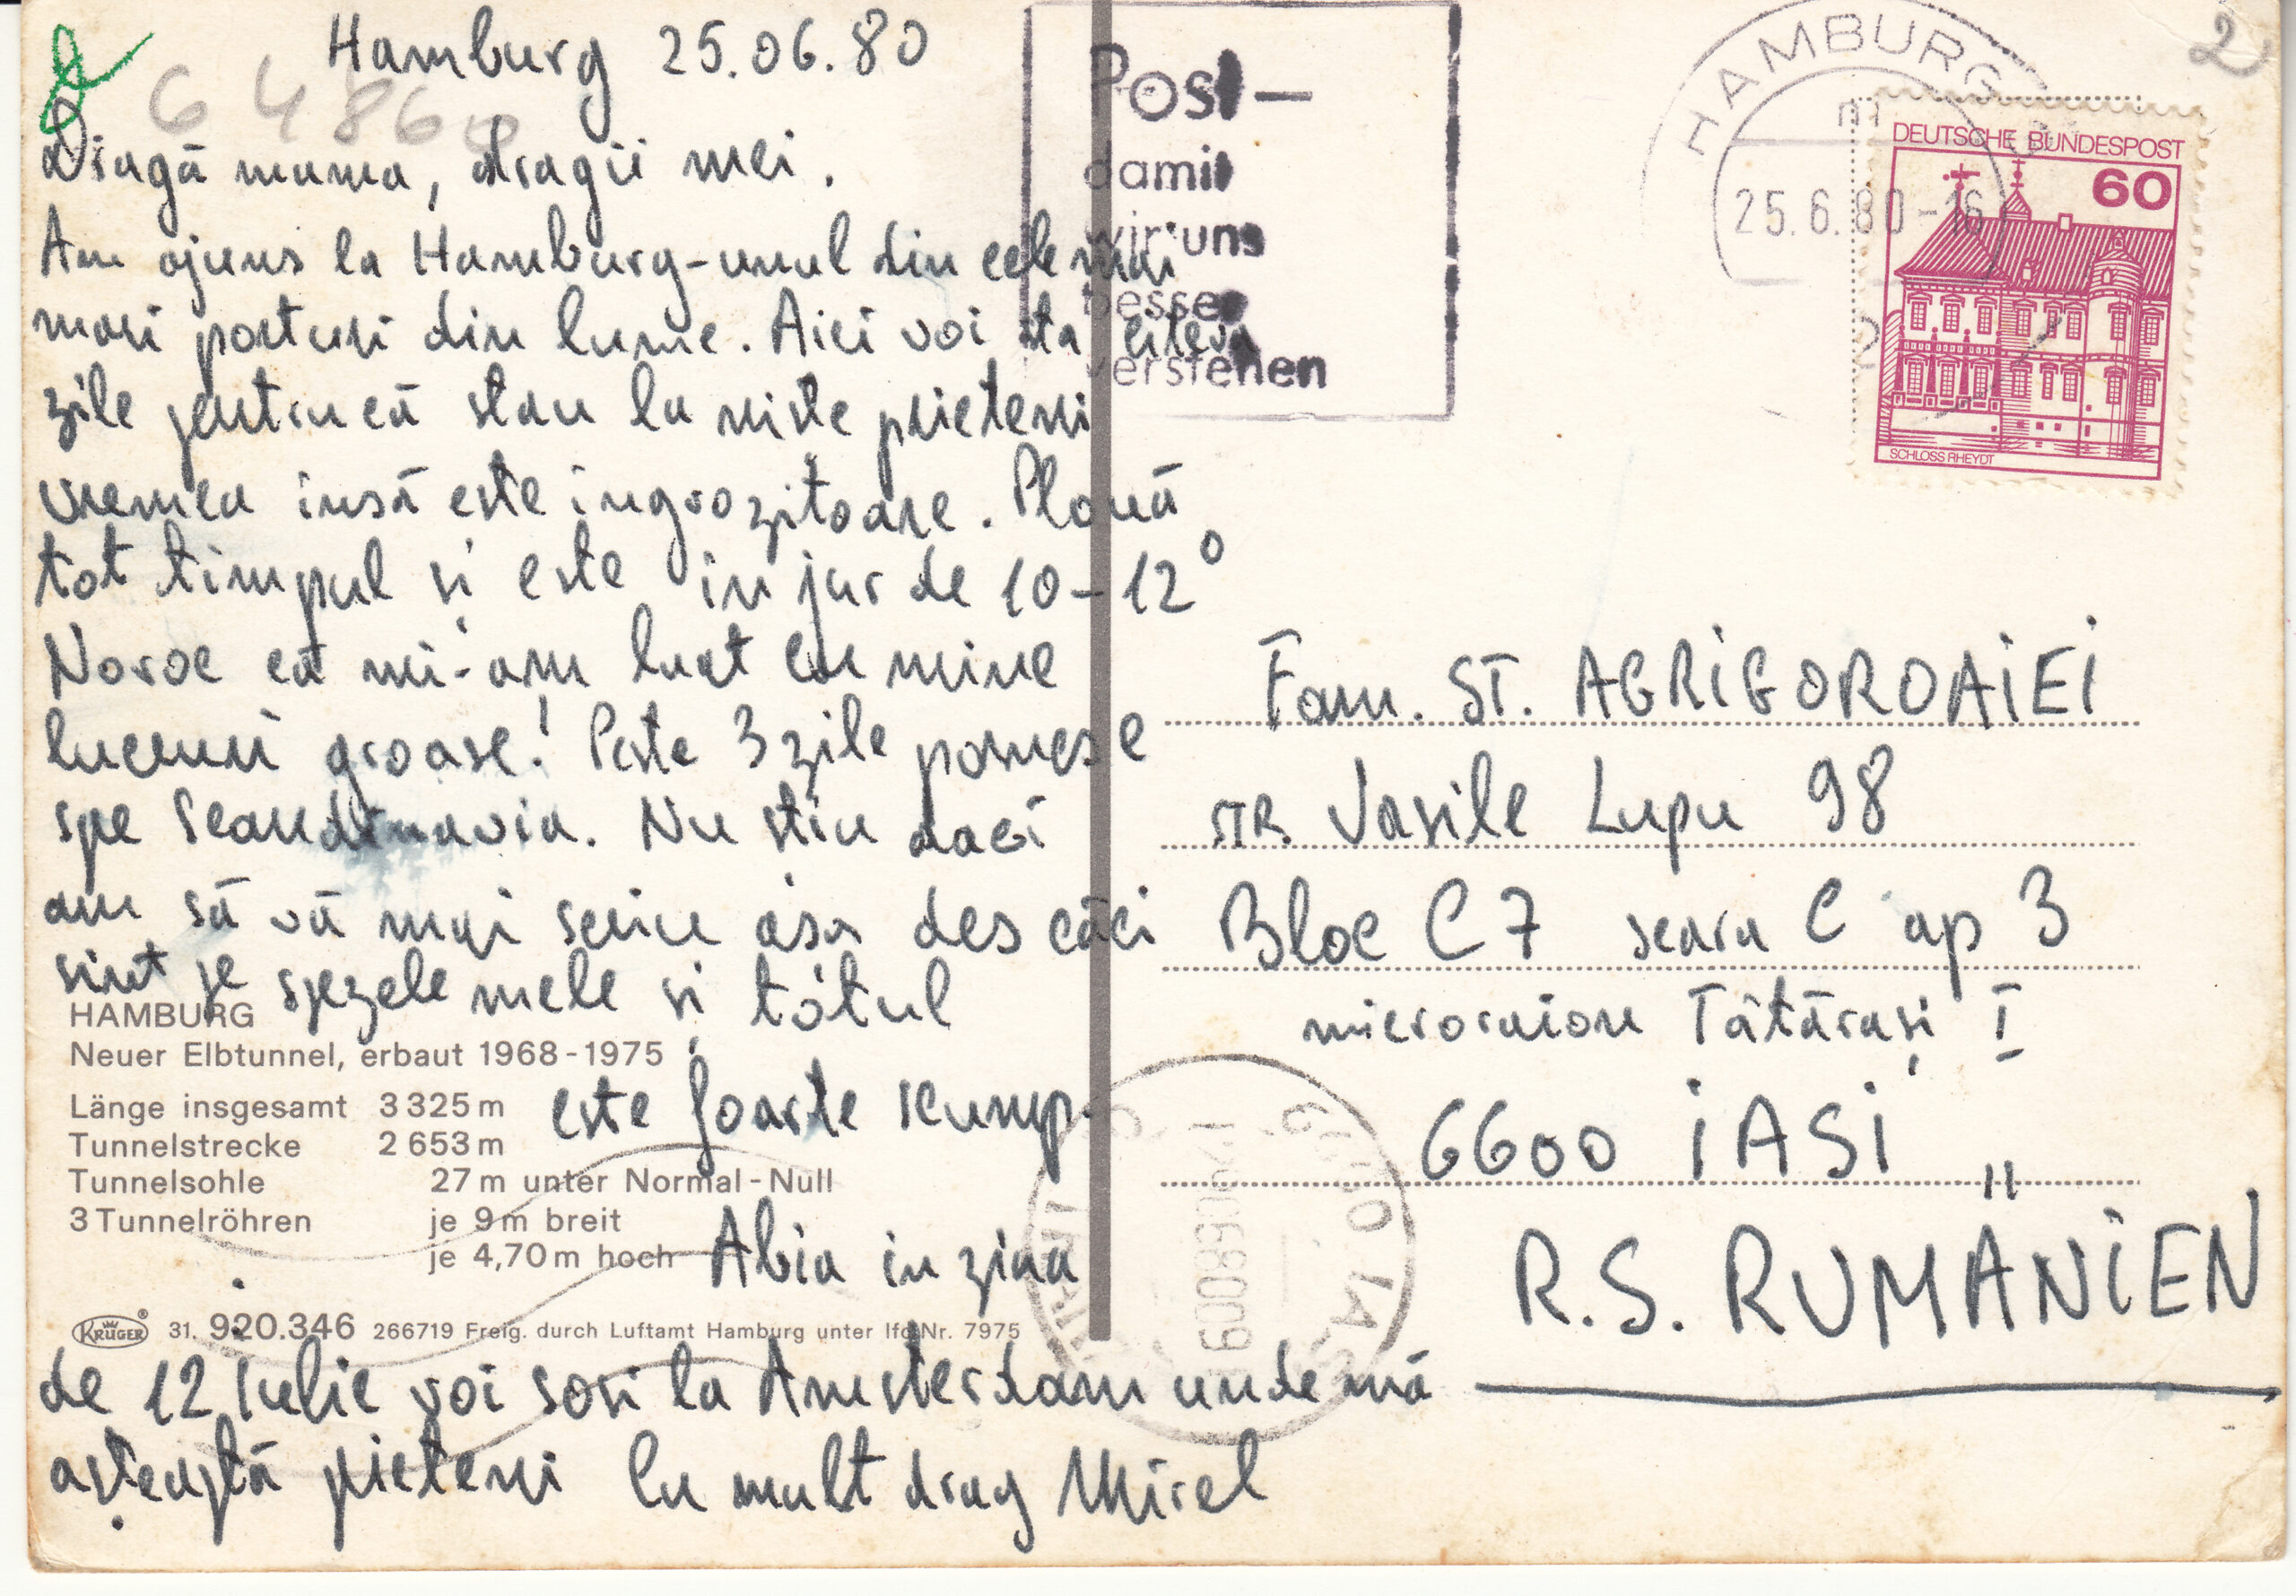 Hamburg 25.06.80
Dragă mama, dragii mei.
Am ajuns la Hamburg-unul din cele mai
mari porturi din lume. Aici voi sta cîteva
zile pentru că stau la niste prieteni
vremea insă este ingrozitoare. Plouă
tot timpul și este in jur de 10-12°
Noroc că mi-am luat cu mine
lucruri groase! Peste 3 zile pornesc
spe Scandinavia. Nu stiu dacă
am să vă mai scriu așa des căci
sint pe spezele mele și totul
este foarte scump.
Abia in ziua
de 12 Iulie voi sosi la Amsterdam unde mă
așteaptă prieteni Cu mult drag Mirel
HAMBURG
Neuer Elbtunnel, erbaut 1968-1975
Länge insgesamt 3 325 m
Tunnelstrecke 2 653 m
Tunnelsohle 27 m unter Normal-Null
3 Tunnelröhren je 9 m breit
je 4,70 m hoch
KRÜGER® 31. 920.346 266719 Freig. durch Luftamt Hamburg unter lfd Nr. 7975
Post-
damit
wir uns
besser
verstehen
HAMBURG
25.6.80-16
DEUTSCHE BUNDESPOST
60
SCHLOSS RHEYDT
2
Fam. ST. AGRIGOROAIEI
STR. Vasile Lupu 98
Bloc C7 scara C ap 3
microraion Tătărași I
6600 IASI
R.S. RUMÄNIEN